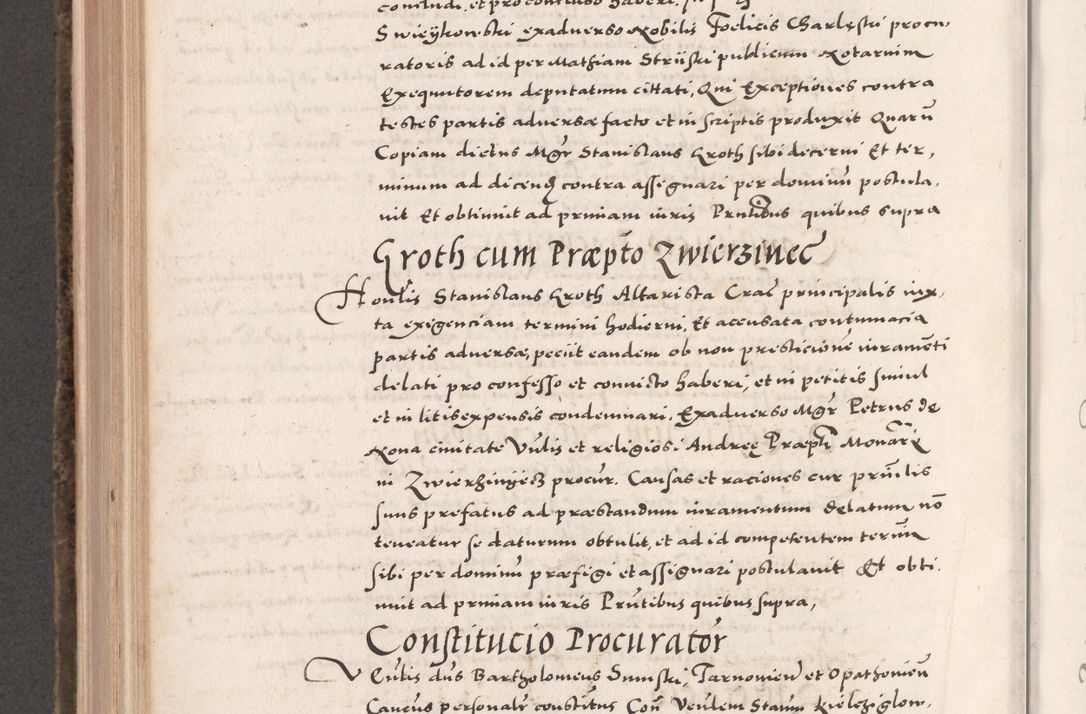 concludi, et pro concluso haberi,
Swieykowski ex adverso Nobilis Foelicis Charlęski procu-
ratoris ad id per Mathiam Striiski publicum Notarium
Exequutorem deputatum cittati, Qui Exceptiones contra
testes partis adversae facto et in scriptis produxit Quarū
Copiam dictus Mgr Stanislaus Groth sibi decerni Et ter,
minum ad dicend contra assignari per dominū postula,
uit Et obtinuit ad prmiam iuris Prntibus quibus supra
Groth cum Præpto Zwierzinec
Honlis Stanislaus Groth Altarista Crac principalis iux,
ta exigenciam termini hodierni, Et accusata contumacia
partis adversæ, peciit eandem ob non presticionē iuramēti
delati pro confesso et convicto haberi, et in petitis simul
et in litis expensis condemnari, Ex adverso Mgr Petrus de
Nova civitate Vūlis et religiosi Andreę Præpti Monarū
in Zwierzinijecz procūr. Causas et raciones cur prn̄ilis
suus prefatus ad præstandum iuramentum delatum nō
teneatur se daturum obtulit, et ad id competentem termī
sibi per dominū præfigi et assignari postulavit Et obti.
nuit ad prmiam iuris Prūtibus quibus supra,
Constitucio Procurator
Vēulis dūs Bartholomeus Sumski, Tarnoviēn et Opathoviēn
Caucus personalr constitūs Coñ Veulem Stanū Kielczigłow,